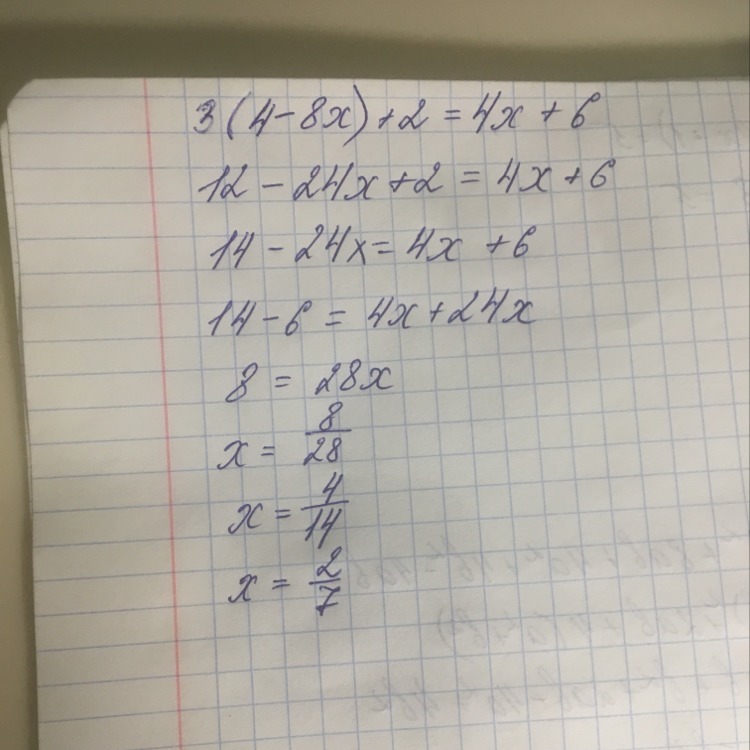 3(4-8x)+2=4x+6
12-24x+2=4x+6
14-24x=4x+6
14-6=4x+24x
8=28x
x=8/28
x=4/14
x=2/7